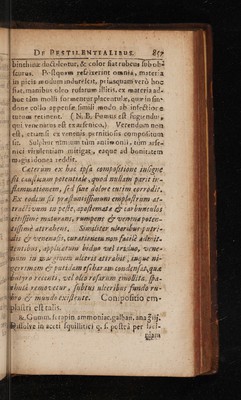 DE PESTILENTIALIBUS. 859
binthina ductilentur, & color fiat rubeus subob-
scurus. Postquam refrixerint omnia, materia
in picis modum indurescit, priusquam verò hoc
fiat, manibus oleo rosarum illitis, ex materia ad-
huc tàm molli formentur placentulæ, quæ in sin-
done collo appensæ simili modo ab infectione
tutum reddunt. (N. B. Fumus est fugiendus,
qui venenatus est ex arsenico.) Verendum non
est, etiamsi ex venenis pernitiosis compositum
sit. Sulphur etenim tùm antimonii, tùm arse-
nici virulentiam mitigat, eaque ad bonitatem
magis idonea reddit.
Cæterum ex hac ipsa compositione insigne
fit causticum potentiale, quod nullam parit in-
flammationem, sed sine dolore tutim corrodit.
Ex eodem fit præstantissimum emplastrum at-
tractivum in peste, apostemata & carbunculos
citissimè maturans, rumpens & venena poten-
tissimè attrahens. Similiter ulceribus putri-
dis & venenosis, curationem non facilè admit-
tentibus, applicatum biduo vel triduo, vene-
num in quacunque ulceris attrahit, inque ni-
gerrimam & putidam escharam condensat, quæ
butyro recenti, vel oleo rosarum emollita, spa-
thulâ removetur, subtus ulceribus fundo ru-
bro & mundo existente. Compositio em-
plastri est talis.
℞. Gumm. serapin. ammoniac. galban. ana ℥iij.
dissolve in aceti squillitici q. s. posteà per fasci-